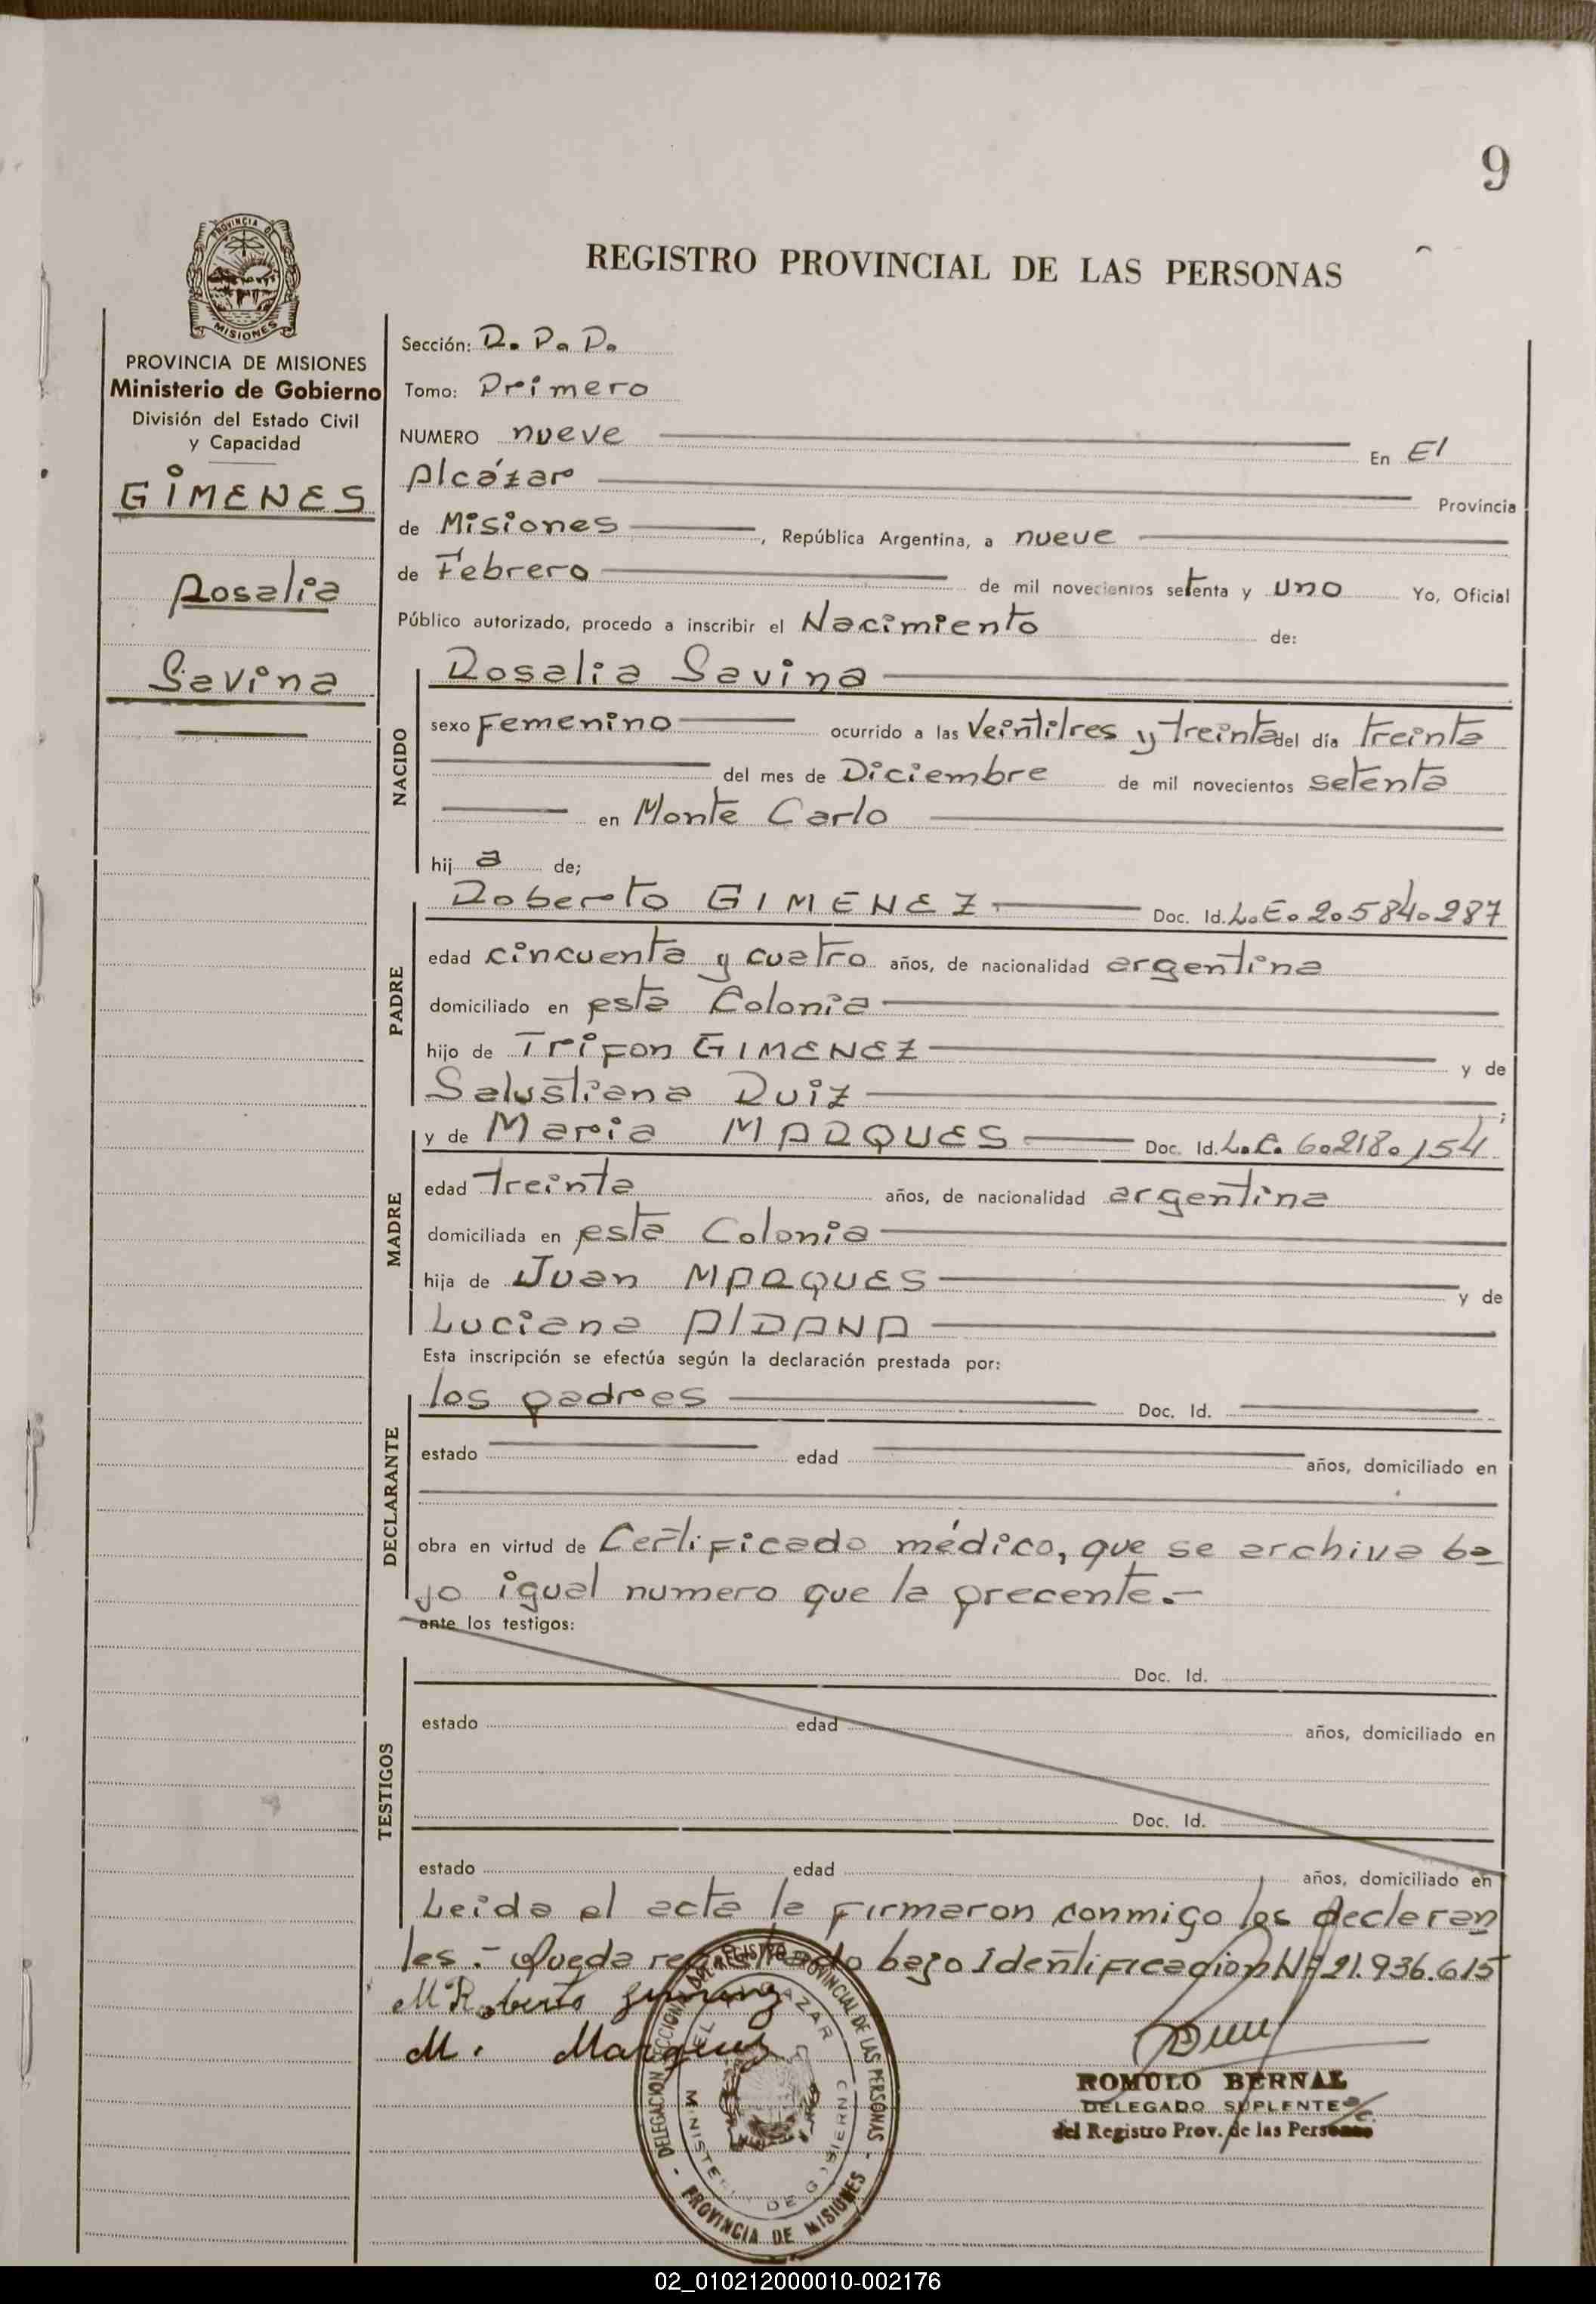 9
PROVINCIA DE
MISIONES
REGISTRO PROVINCIAL DE LAS PERSONAS
PROVINCIA DE MISIONES
Ministerio de Gobierno
División del Estado Civil
y Capacidad
GIMENES
Rosalia
Savina
Sección: R. P. P.
Tomo: Primero
NUMERO nueve En El
Alcázar Provincia
de Misiones, República Argentina, a nueve
de Febrero de mil novecientos setenta y uno Yo, Oficial
Público autorizado, procedo a inscribir el Nacimiento de:
NACIDO
Rosalia Savina
sexo Femenino ocurrido a las Veintitres y treinta del día treinta
del mes de Diciembre de mil novecientos setenta
en Monte Carlo
hij a de;
PADRE
Roberto GIMENEZ. Doc. Id. L.E. 2.584.287
edad cincuenta y cuatro años, de nacionalidad argentina
domiciliado en esta Colonia
hijo de Trifon GIMENEZ y de
Salustiana Ruiz ;
MADRE
y de Maria MARQUES Doc. Id. L.C. 6.218.154
edad treinta años, de nacionalidad argentina
domiciliada en esta Colonia
hija de Juan MARQUES y de
Luciana AlDANA
Esta inscripción se efectúa según la declaración prestada por:
DECLARANTE
los padres Doc. Id.
estado edad años, domiciliado en
obra en virtud de Certificado médico, que se archiva ba
jo igual numero que la precente.-
ante los testigos:
TESTIGOS
Doc. Id.
estado edad años, domiciliado en
Doc. Id.
estado edad años, domiciliado en
Leida el acta la firmaron conmigo los declaran
tes.- Queda registrado bajo Identificacion Nº 21.936.615
M Roberto Gimenez
M. Marques
DELEGACION SECCION DEL REGISTRO PROVINCIAL DE LAS PERSONAS - PROVINCIA DE MISIONES -
EL ALCAZAR
MINISTERIO DE GOBIERNO
ROMULO BERNAL
DELEGADO SUPLENTE a/c.
del Registro Prov. de las Personas
02_010212000010-002176